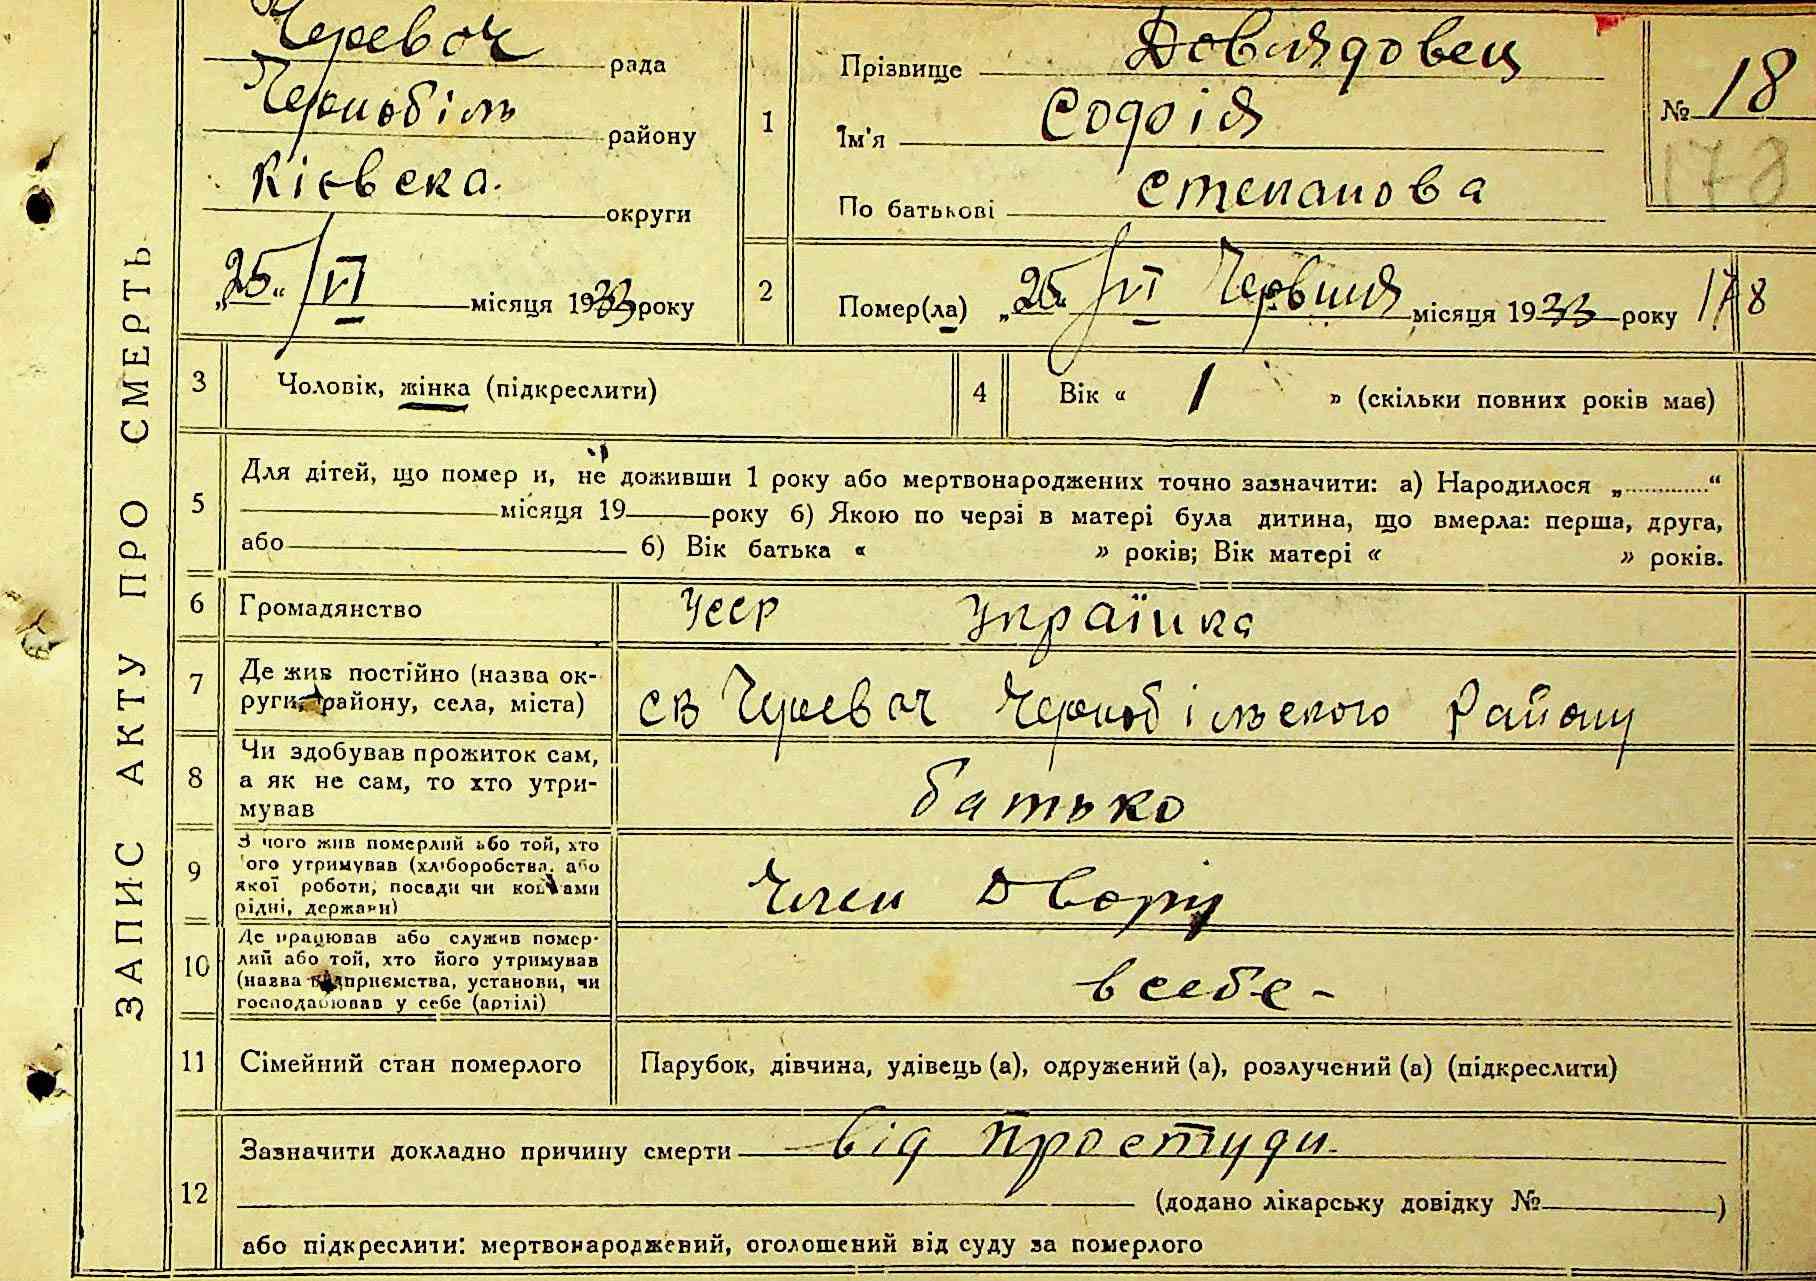 ЗАПИС АКТУ ПРО СМЕРТЬ
Черевач рада
Чернобіль району
Кієвска округи
„25“ / VI місяця 1933 року
1
Прізвище
Ім'я Содоія
По батькові Степанова
№ 18
178
2
Помер(ла) „25“ / VI Червния місяця 1933 року 178
3 Чоловік, жінка (підкреслити)
4 Вік « 1 » (скільки повних років має)
5
Для дітей, що помер и, не доживши 1 року або мертвонароджених точно зазначити: а) Народилося „............“
місяця 19 року б) Якою по черзі в матері була дитина, що вмерла: перша, друга,
або б) Вік батька « » років; Вік матері « » років.
6 Громадянство Усср Українка
7
Де жив постійно (назва ок-
руги, району, села, міста) св Черевач Чернобільского Району
8
Чи здобував прожиток сам,
а як не сам, то хто утри-
мував
батько
9
З чого жив померлий або той, хто
його утримував (хліборобства, або
якої роботи, посади чи коштами
рідні, держави)
Член Двору
10
Де працював або служив помер-
лий або той, хто його утримував
(назва підприємства, установи, чи
господарював у себе (артілі)
в себе -
11 Сімейний стан померлого Парубок, дівчина, удівець (а), одружений (а), розлучений (а) (підкреслити)
12
Зазначити докладно причину смерти від простуди
(додано лікарську довідку № )
або підкреслити: мертвонароджений, оголошений від суду за померлого